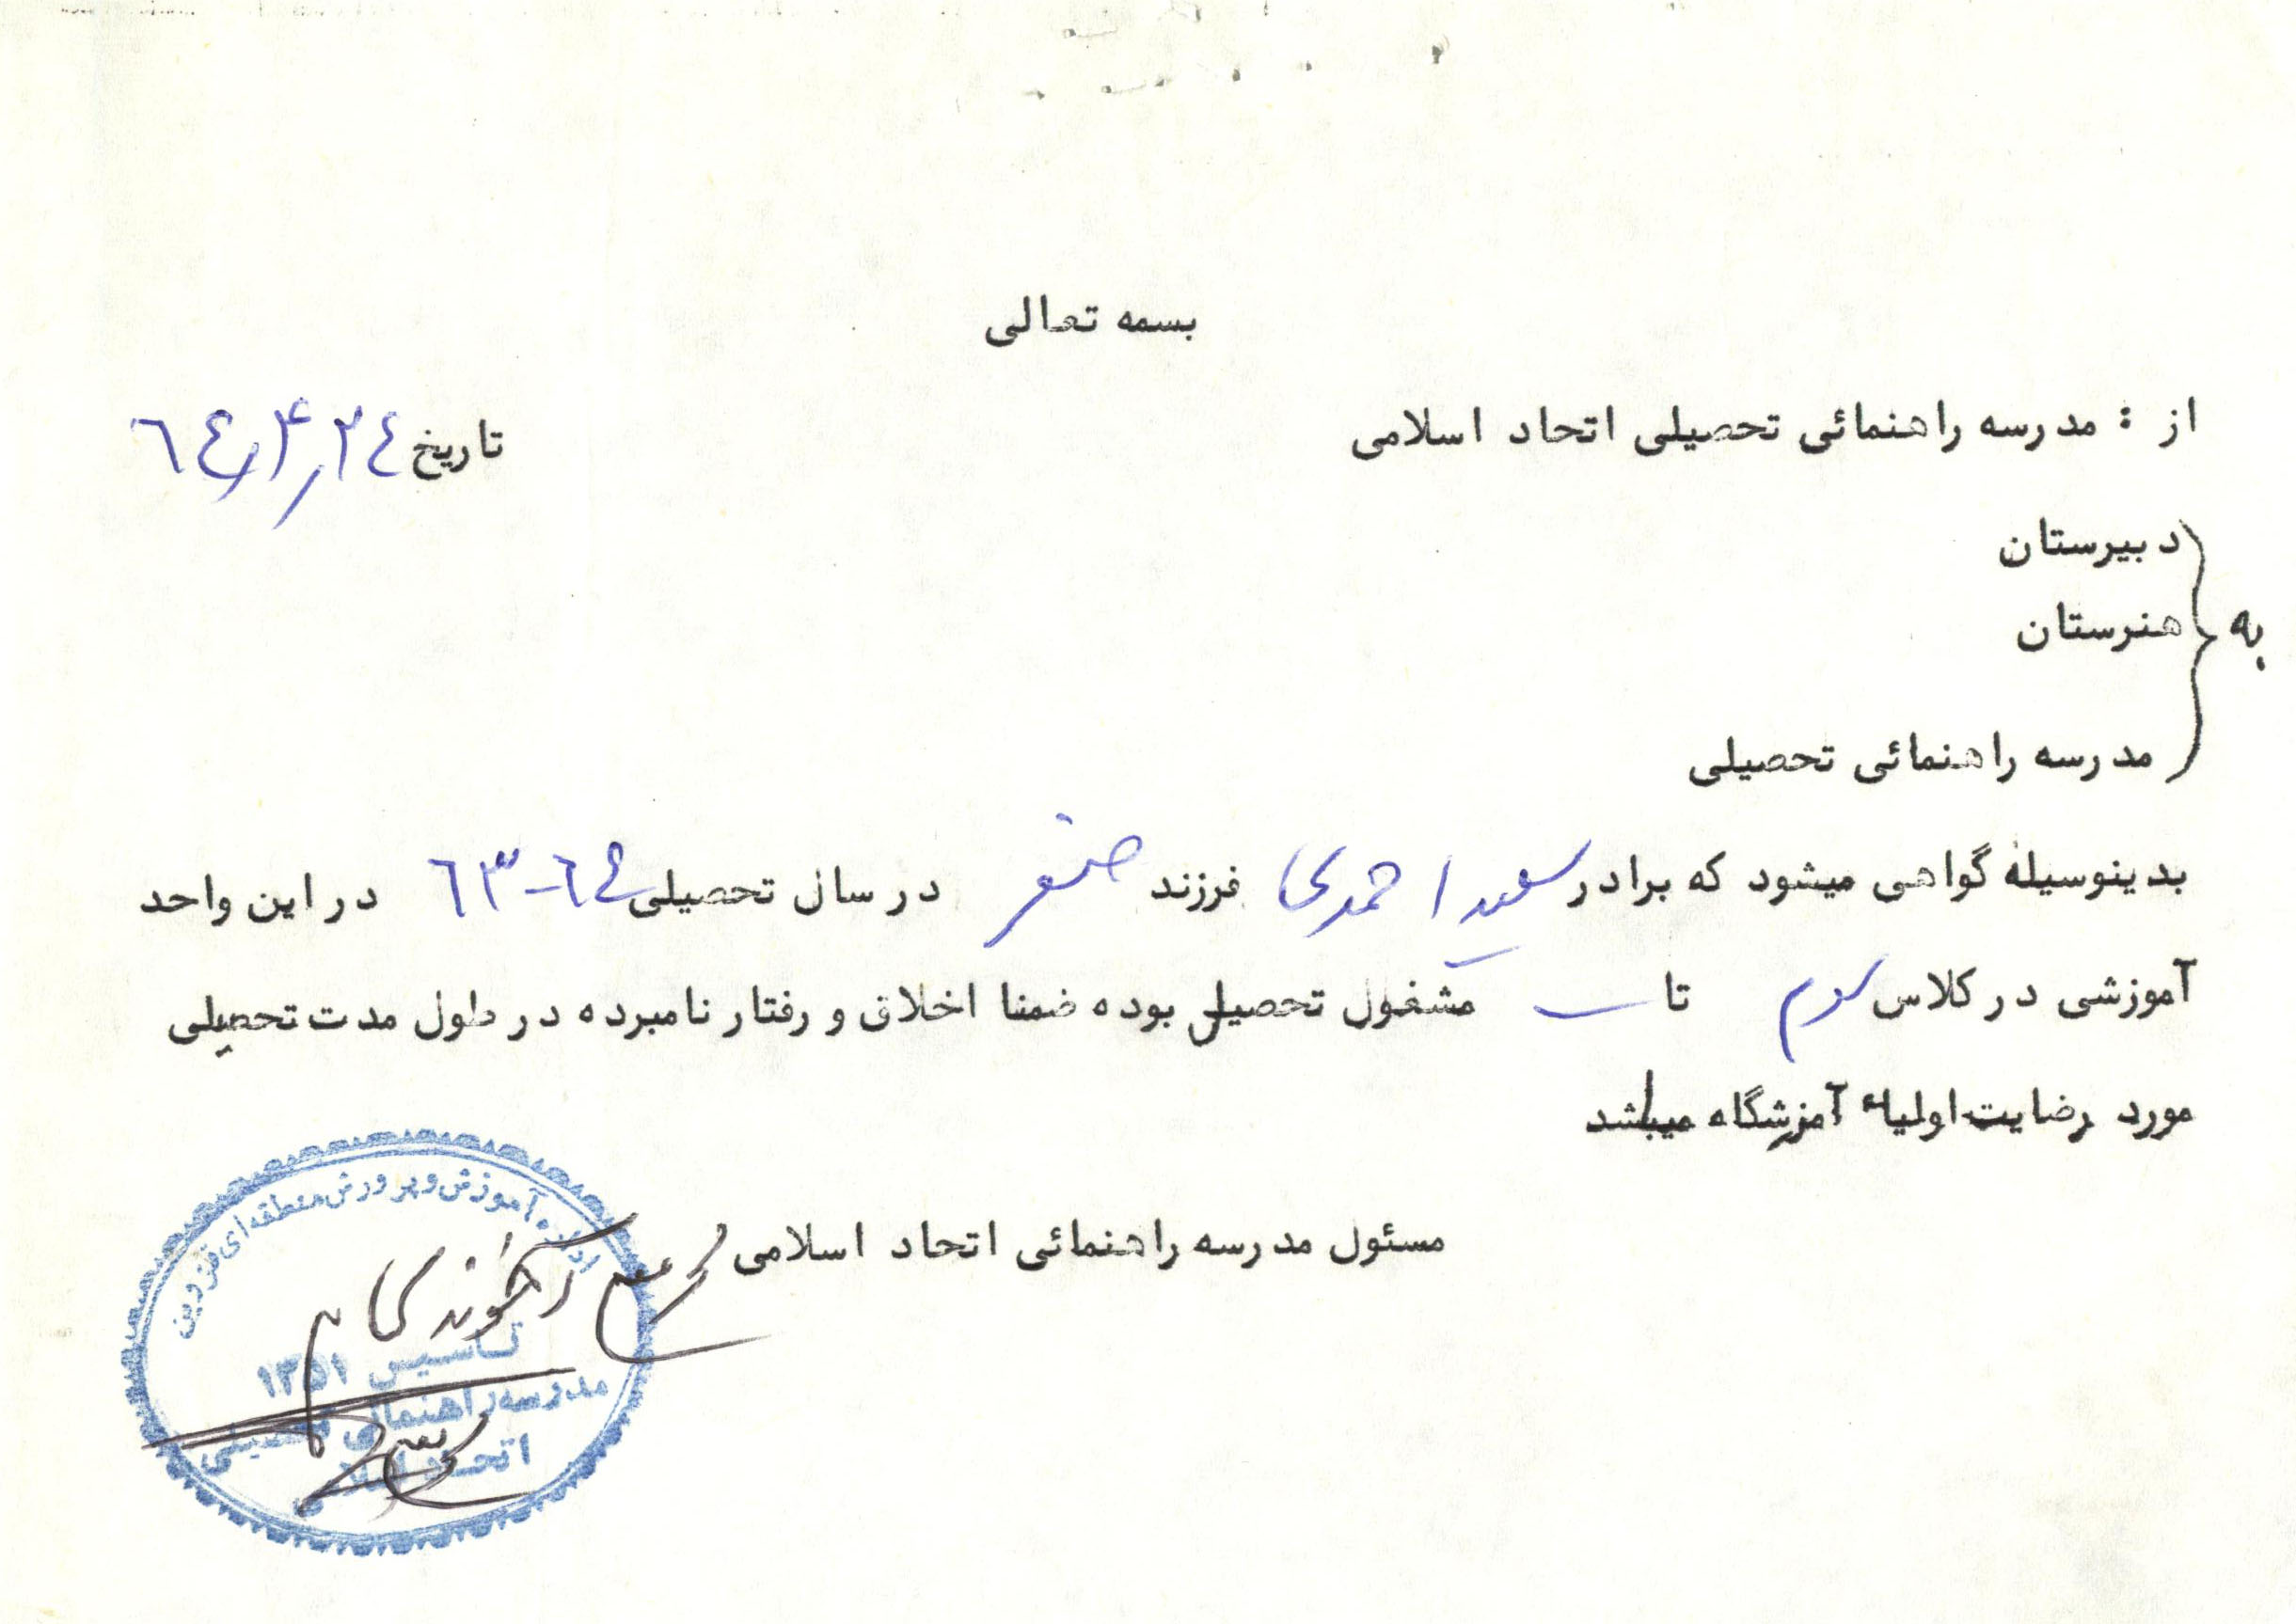 بسمه تعالی
از : مدرسه راهنمائی تحصیلی اتحاد اسلامی
تاریخ ٦٤٫۴٫۲٤
به
دبیرستان
هنرستان
مدرسه راهنمائی تحصیلی
بدینوسیله گواهی میشود که برادر سعید احمدی فرزند در سال تحصیلی ٦۴-٦۳ در این واحد
آموزشی در کلاس سوم تا — مشغول تحصیل بوده ضمنا اخلاق و رفتار نامبرده در طول مدت تحصیلی
مورد رضایت اولیاء آموزشگاه میباشد
مسئول مدرسه راهنمائی اتحاد اسلامی
اداره آموزش و پرورش منطقه ای قزوین
تاسیس ۱۳۵۱
مدرسه راهنمائی تحصیلی
اتحاد اسلامی